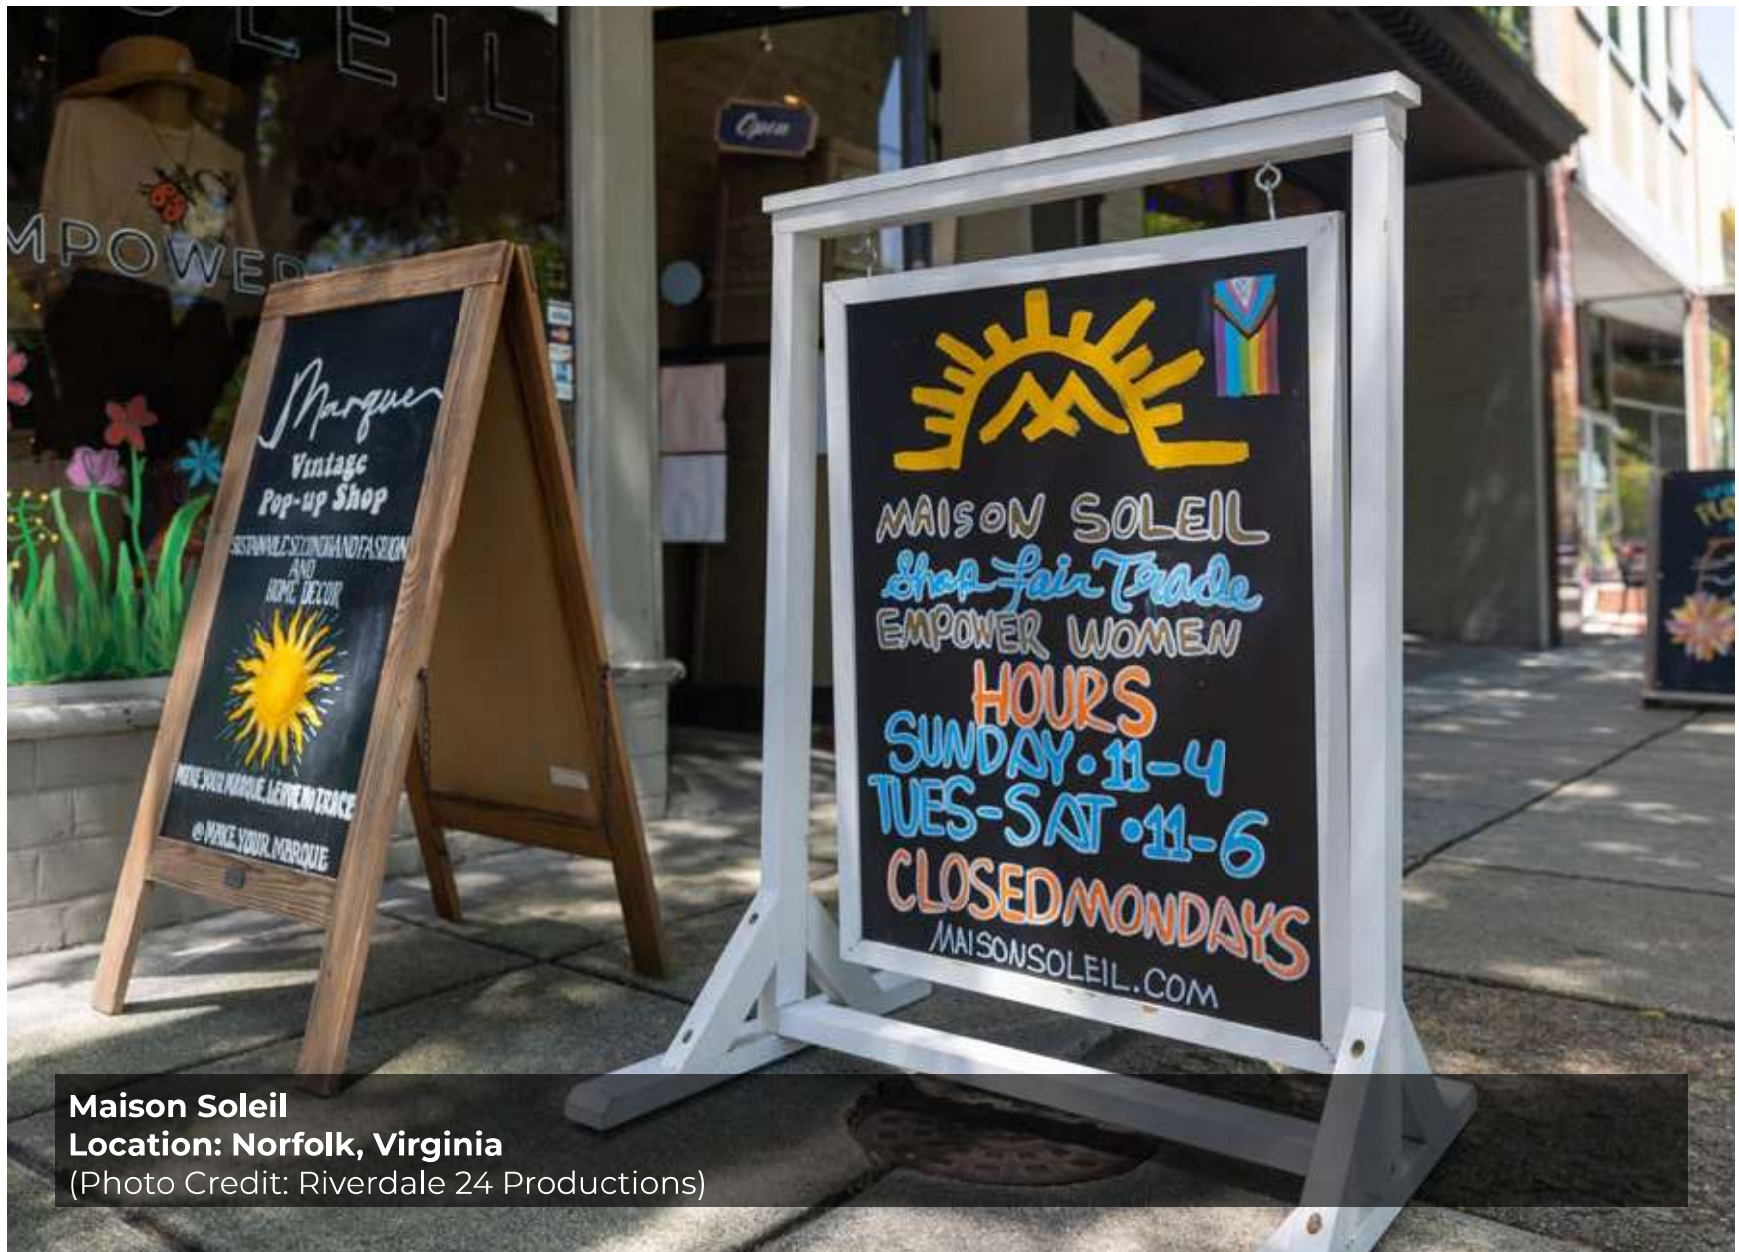 SOLEIL
EMPOWER
Open
Marque
Vintage
Pop-up Shop
SUSTAINABLE SECONDHAND FASHION
AND
HOME DECOR
MAKE YOUR MARQUE, LEAVE NO TRACE
@MAKE.YOUR.MARQUE
MAISON SOLEIL
Shop Fair Trade
EMPOWER WOMEN
HOURS
SUNDAY • 11-4
TUES-SAT • 11-6
CLOSED MONDAYS
MAISONSOLEIL.COM
Maison Soleil
Location: Norfolk, Virginia
(Photo Credit: Riverdale 24 Productions)